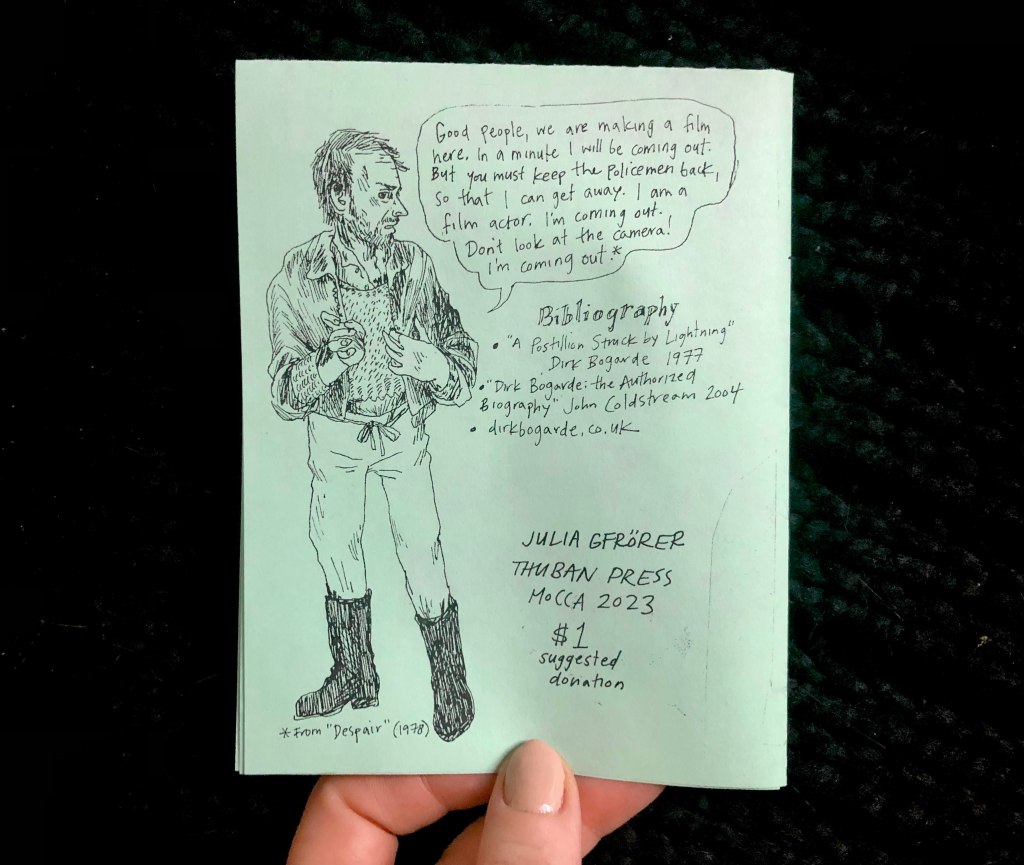 Good people, we are making a film
here. In a minute I will be coming out.
But you must keep the Policemen back,
so that I can get away. I am a
film actor. I'm coming out.
Don't look at the camera!
I'm coming out.*
Bibliography
• "A Postillion Struck by Lightning"
Dirk Bogarde 1977
• "Dirk Bogarde: the Authorized
Biography" John Coldstream 2004
• dirkbogarde.co.uk
JULIA GFRÖRER
THUBAN PRESS
MoCCA 2023
$1
suggested
donation
*From "Despair" (1978)